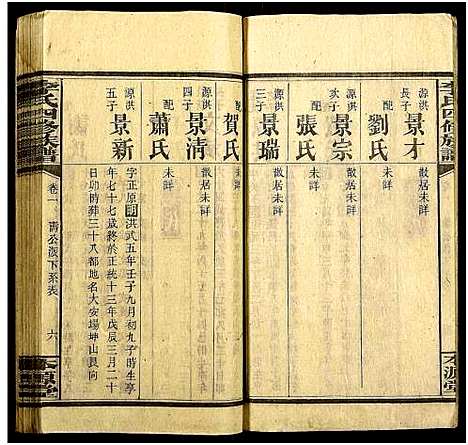 李氏四修族譜
源洪
長子
景才
散居未詳
配
劉氏
未詳
源洪
次子
景宗
散居未詳
配
張氏
未詳
源洪
三子
景瑞
散居未詳
配
賀氏
未詳
源洪
四子
景清
散居未詳
配
蕭氏
未詳
源洪
五子
景新
字正原明洪武五年壬子九月初九子時生享
年七十七歲終於正統十三年戊辰三月二十
日卯時葬三十八都地名大安場坤山艮向
李氏四修族譜
卷一
青公派下系表
六
本源堂
本源堂